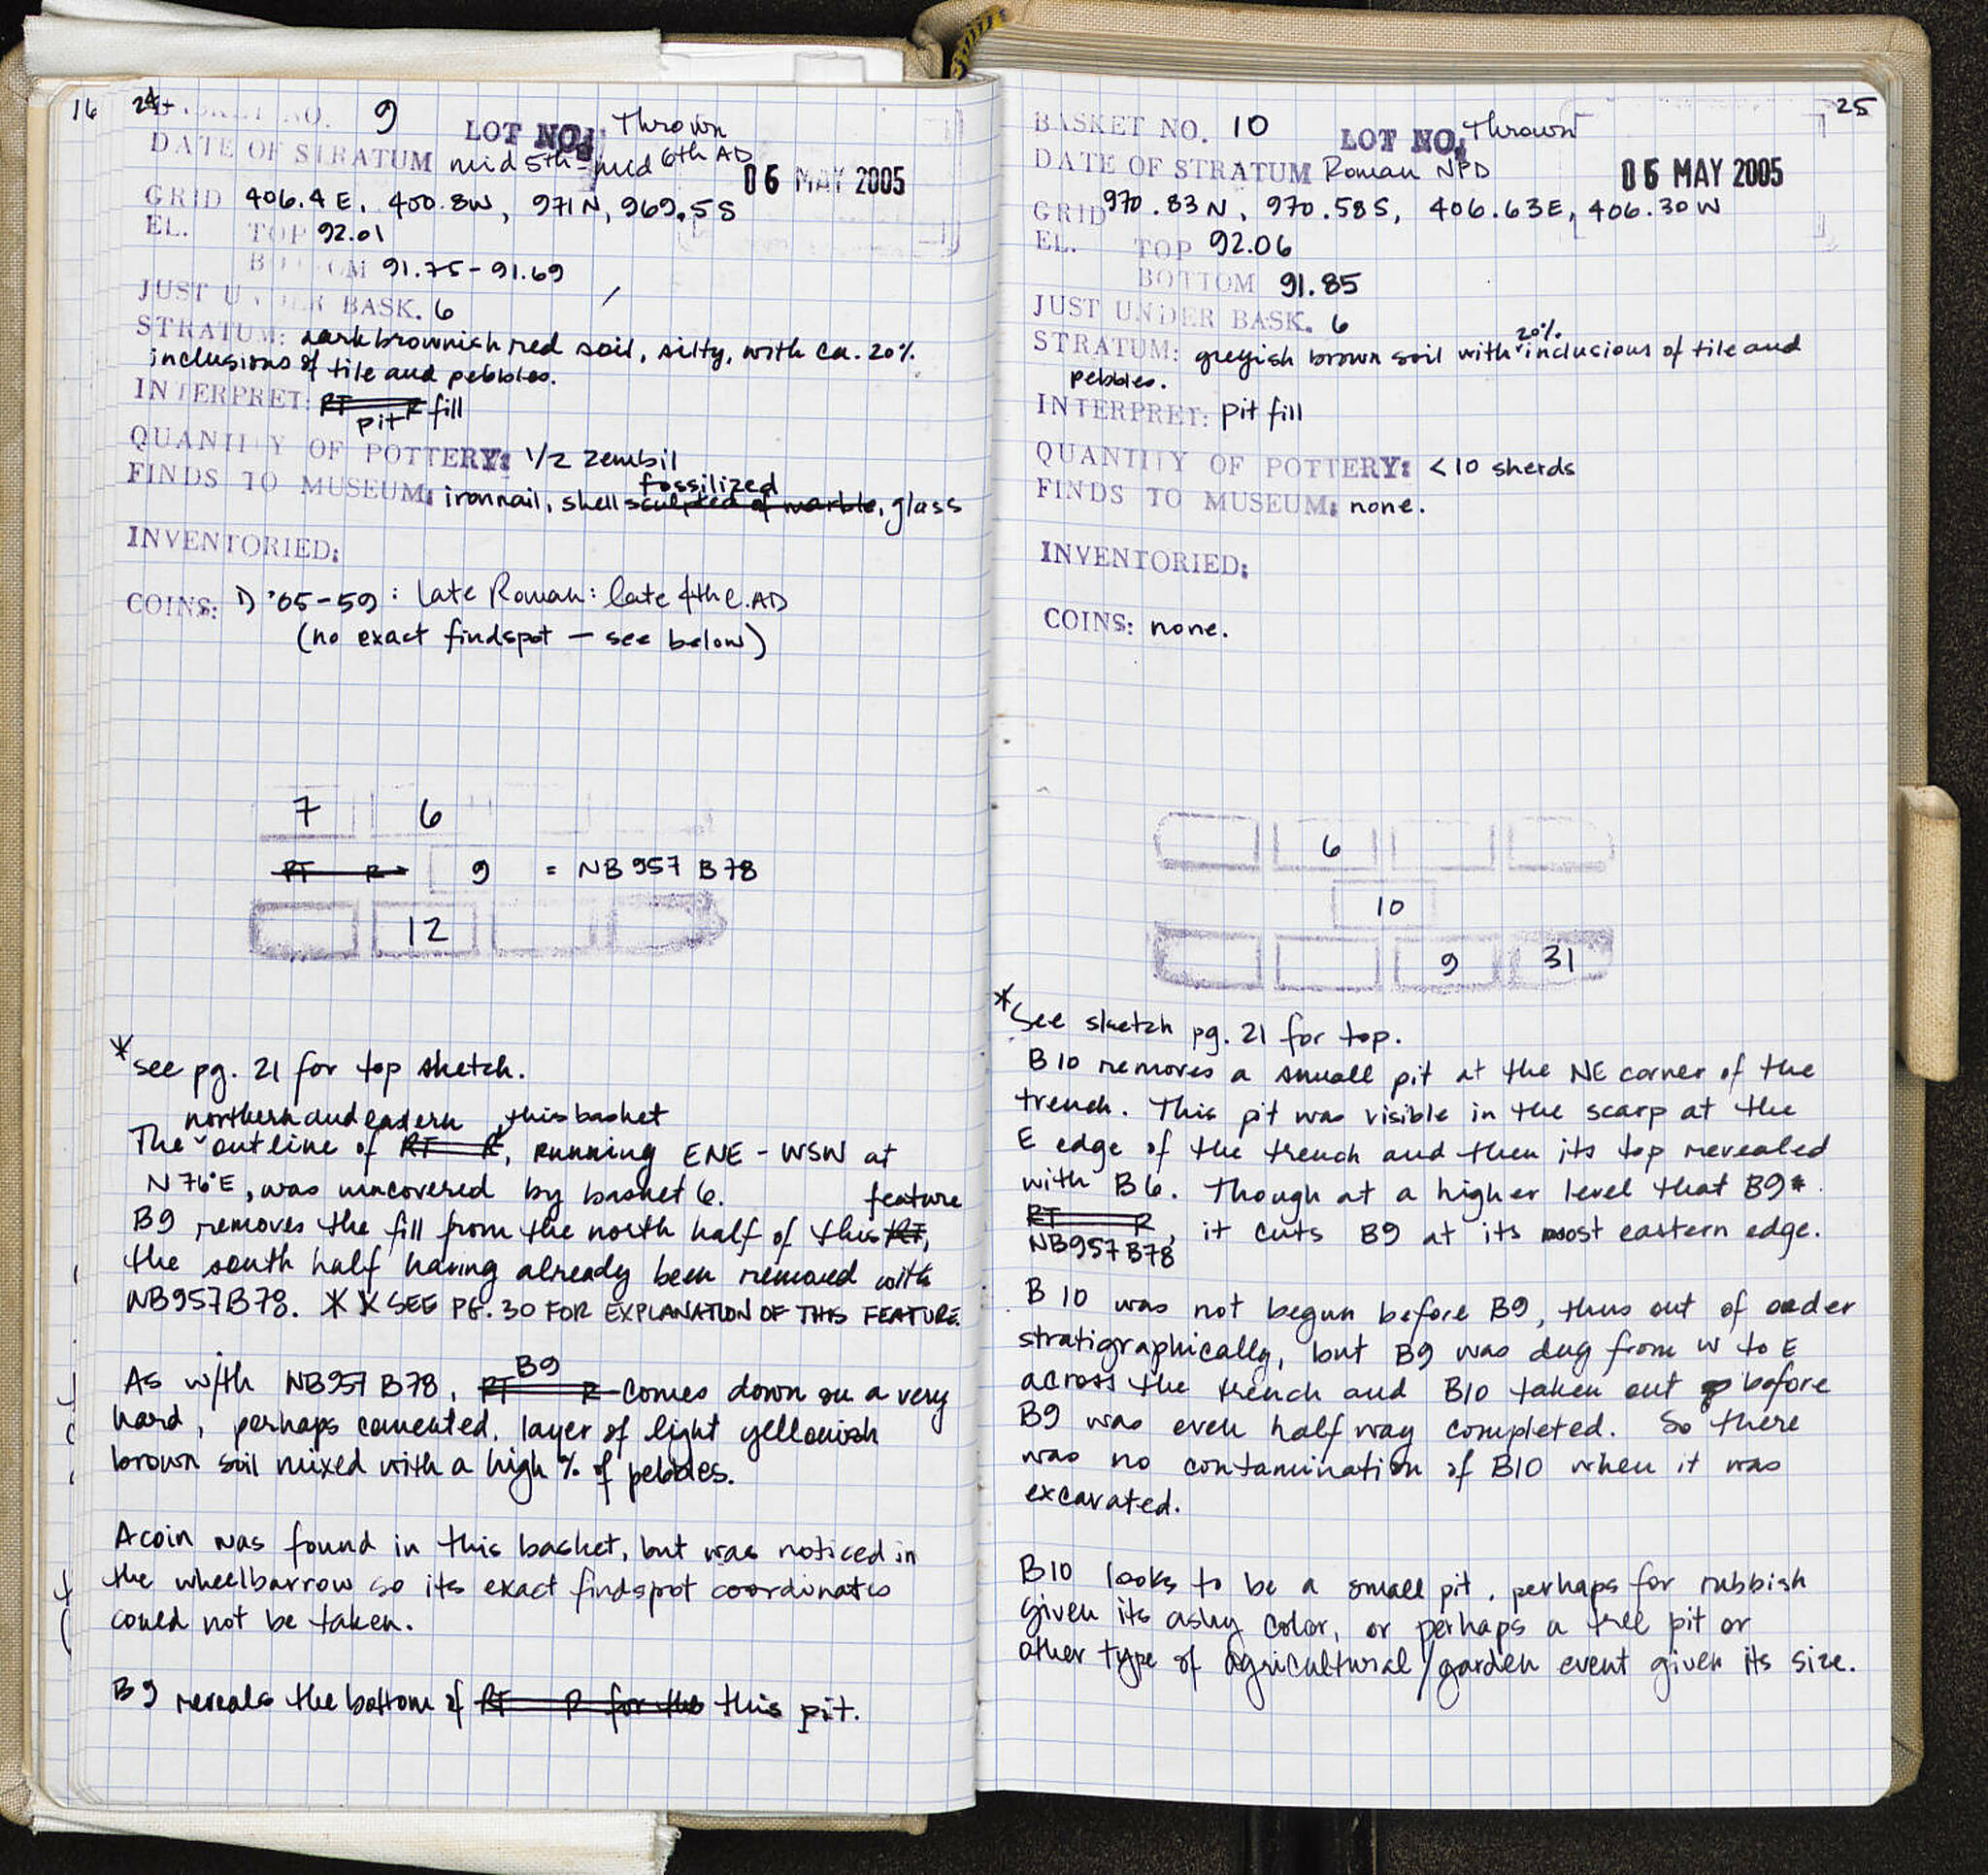 16
24
BASKET NO. 9
LOT NO. Thrown
DATE OF STRATUM mid 5th - mid 6th AD
06 MAY 2005
GRID 406.4 E, 400.8W, 971N, 969.5S
EL. TOP 92.01
BOTTOM 91.75-91.69
JUST UNDER BASK. 6
STRATUM: dark brownish red soil, silty, with ca. 20%
inclusions of tile and pebbles.
INTERPRET: RT R fill
pit
QUANTITY OF POTTERY: 1/2 zembil
fossilized
FINDS TO MUSEUM: iron nail, shell sculpted of marble, glass
INVENTORIED:
COINS: 1) '05-59: Late Roman: late 4th c. AD
(no exact findspot - see below)
7 6
RT R 9 = NB 957 B78
12
* see pg. 21 for top sketch.
northern and eastern this basket
The outline of RT R, running ENE - WSW at
N76°E, was uncovered by basket 6.
feature
B9 removes the fill from the north half of this RT,
the south half having already been removed with
NB957B78. * * SEE PG. 30 FOR EXPLANATION OF THIS FEATURE.
B9
As with NB957 B78, RT R comes down on a very
hard, perhaps cemented, layer of light yellowish
brown soil mixed with a high % of pebbles.
A coin was found in this basket, but was noticed in
the wheelbarrow so its exact findspot coordinates
could not be taken.
B9 reveals the bottom of RT R for the this pit.
25
BASKET NO. 10
LOT NO. Thrown
DATE OF STRATUM Roman NPD
06 MAY 2005
GRID 970.83N, 970.58S, 406.63E, 406.30W
EL. TOP 92.06
BOTTOM 91.85
JUST UNDER BASK. 6
20%
STRATUM: greyish brown soil with inclusions of tile and
pebbles.
INTERPRET: pit fill
QUANTITY OF POTTERY: <10 sherds
FINDS TO MUSEUM: none.
INVENTORIED:
COINS: none.
6
10
9 31
* See sketch pg. 21 for top.
B10 removes a small pit at the NE corner of the
trench. This pit was visible in the scarp at the
E edge of the trench and then its top revealed
with B6. Though at a higher level that B9*
RT R, it cuts B9 at its most eastern edge.
NB957 B78
B10 was not begun before B9, thus out of order
stratigraphically, but B9 was dug from W to E
across the trench and B10 taken out before
B9 was even half way completed. So there
was no contamination of B10 when it was
excavated.
B10 looks to be a small pit, perhaps for rubbish
given its ashy color, or perhaps a tree pit or
other type of agricultural/garden event given its size.